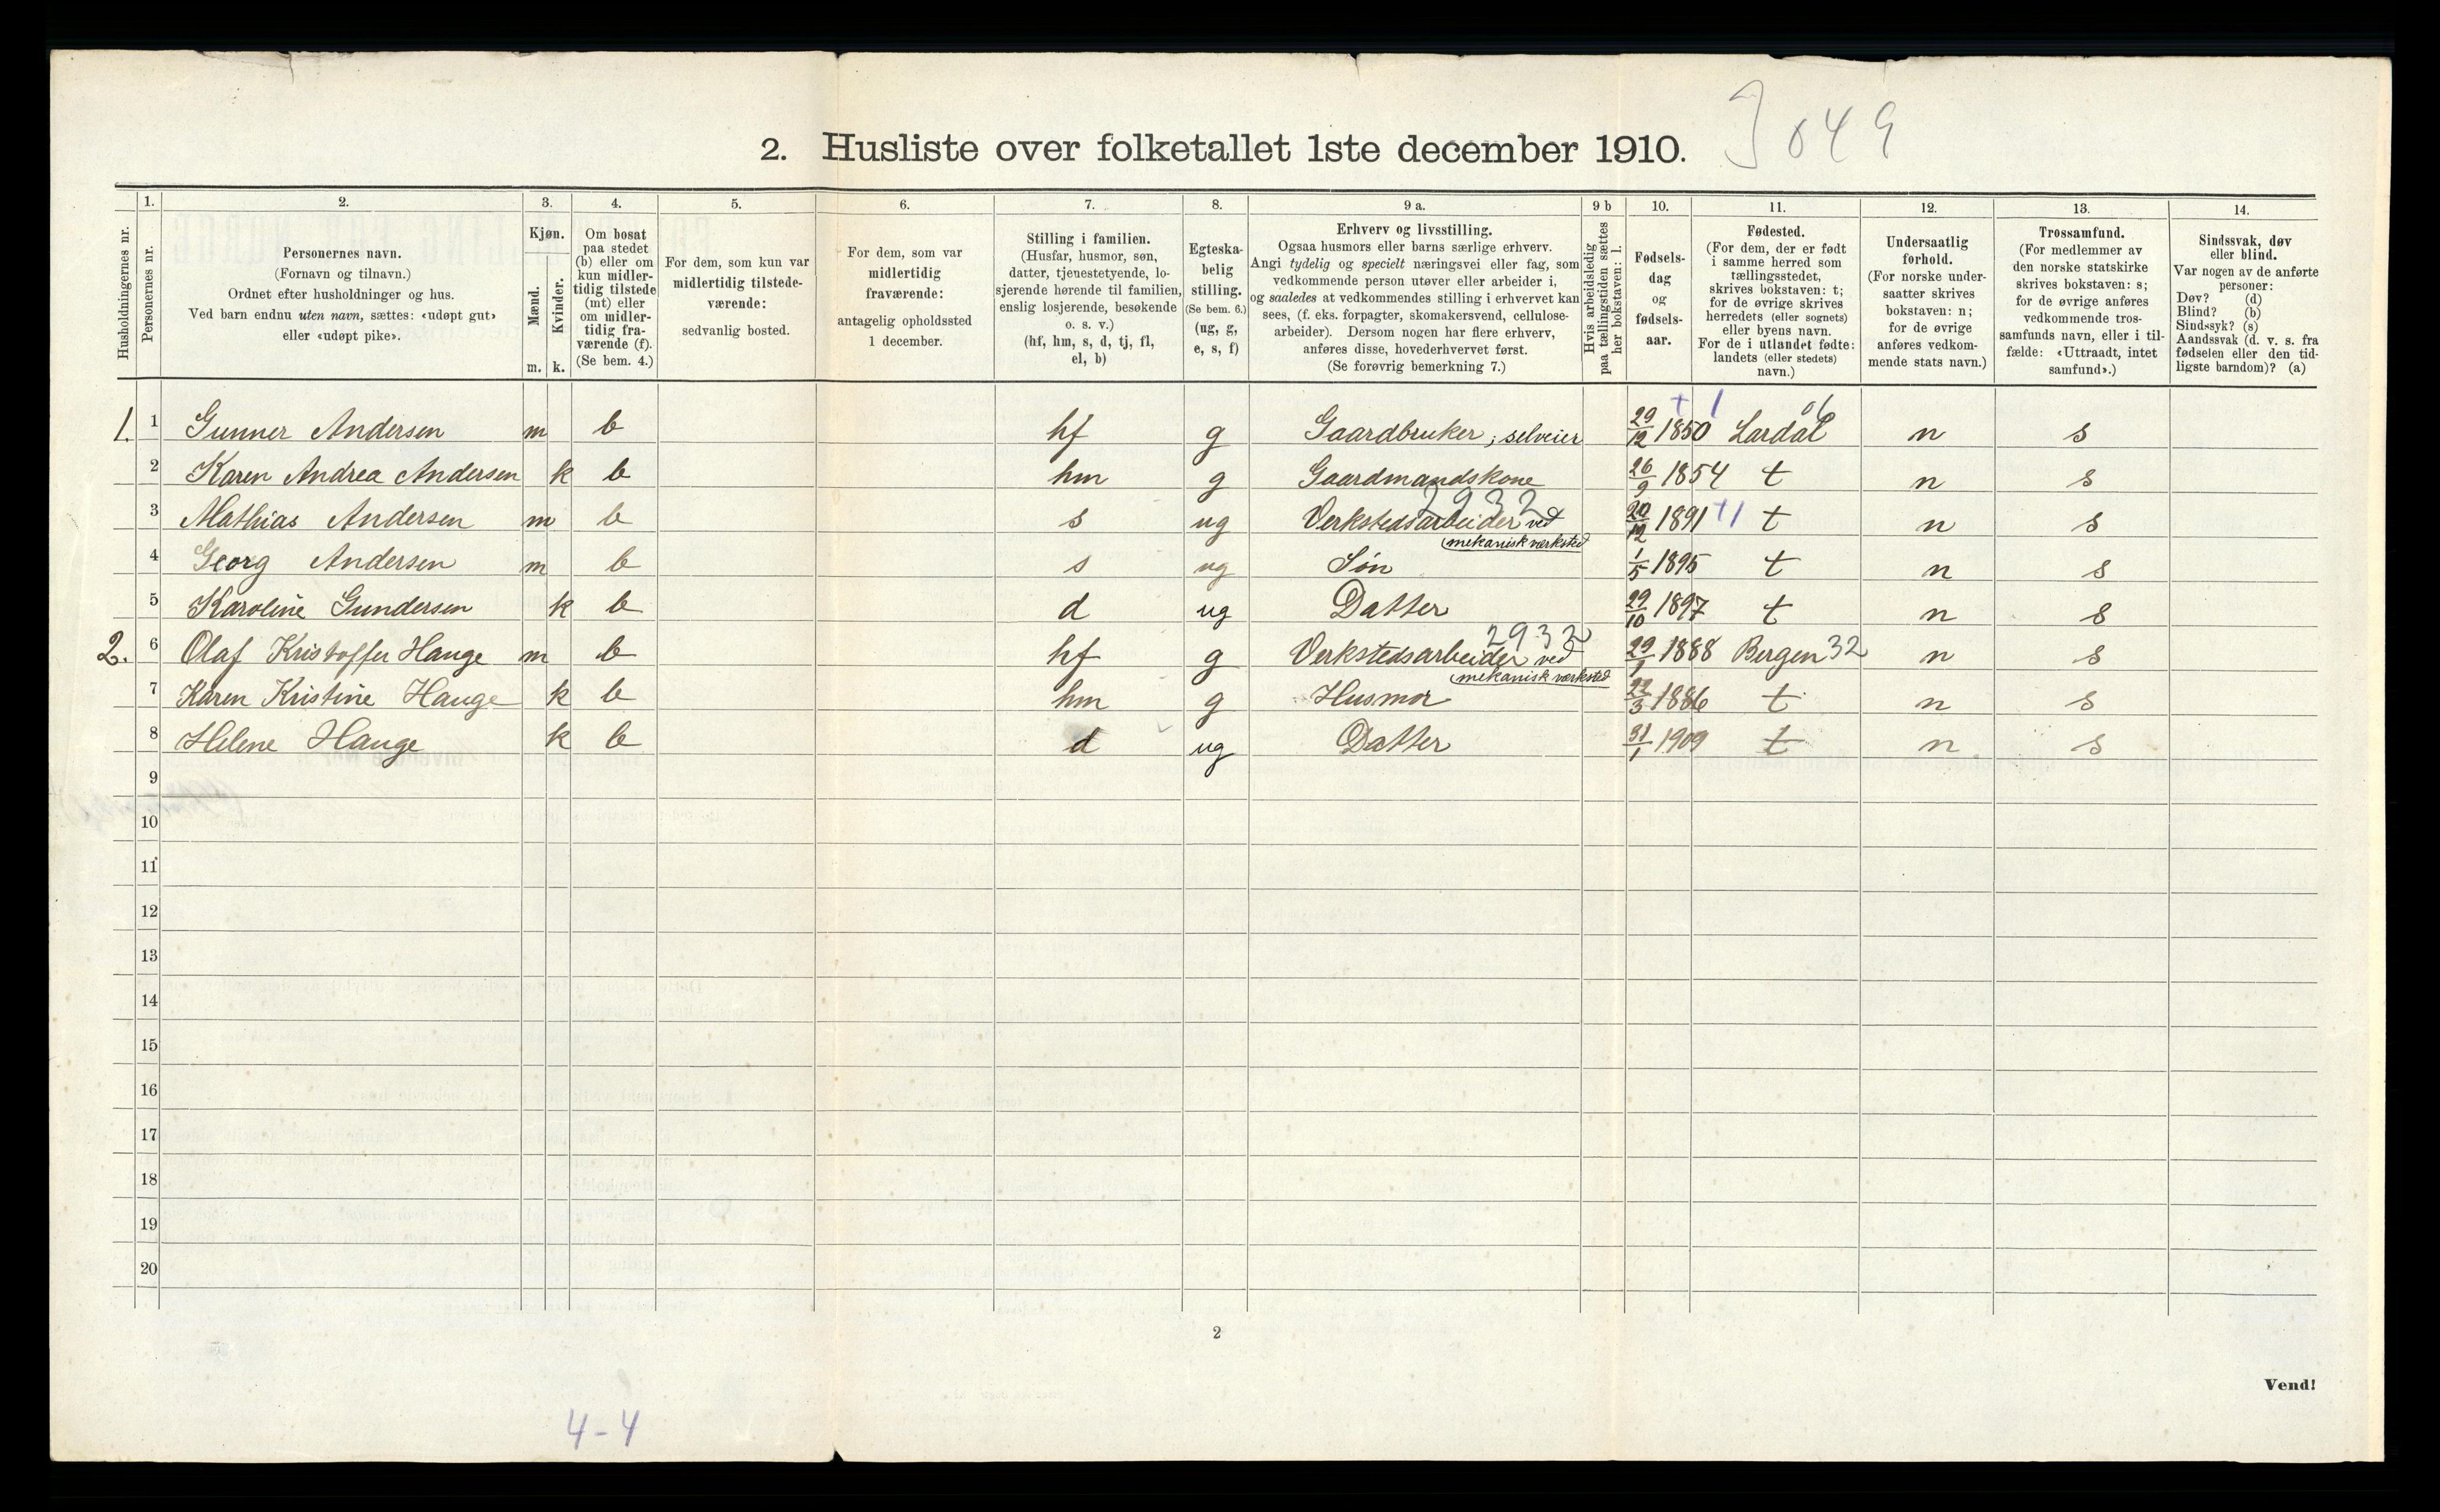 2. Husliste over folketallet 1ste december 1910.
J 049
Husholdningernes nr.
1.
Personernes nr.
2.
Personernes navn.
(Fornavn og tilnavn.)
Ordnet efter husholdninger og hus.
Ved barn endnu uten navn, sættes: «udøpt gut»
eller «udøpt pike».
3.
Kjøn.
Mænd.
Kvinder.
m. k.
4.
Om bosat
paa stedet
(b) eller om
kun midler-
tidig tilstede
(mt) eller
om midler-
tidig fra-
værende (f).
(Se bem. 4.)
5.
For dem, som kun var
midlertidig tilstede-
værende:
sedvanlig bosted.
6.
For dem, som var
midlertidig
fraværende:
antagelig opholdssted
1 december.
7.
Stilling i familien.
(Husfar, husmor, søn,
datter, tjenestetyende, lo-
sjerende hørende til familien,
enslig losjerende, besøkende
o. s. v.)
(hf, hm, s, d, tj, fl,
el, b)
8.
Egteska-
belig
stilling.
(Se bem. 6.)
(ug, g,
e, s, f)
9 a.
Erhverv og livsstilling.
Ogsaa husmors eller barns særlige erhverv.
Angi tydelig og specielt næringsvei eller fag, som
vedkommende person utøver eller arbeider i,
og saaledes at vedkommendes stilling i erhvervet kan
sees, (f. eks. forpagter, skomakersvend, cellulose-
arbeider). Dersom nogen har flere erhverv,
anføres disse, hovederhvervet først.
(Se forøvrig bemerkning 7.)
9 b
Hvis arbeidsledig
paa tællingstiden sættes
her bokstaven: l.
10.
Fødsels-
dag
og
fødsels-
aar.
11.
Fødested.
(For dem, der er født
i samme herred som
tællingsstedet,
skrives bokstaven: t;
for de øvrige skrives
herredets (eller sognets)
eller byens navn.
For de i utlandet fødte:
landets (eller stedets)
navn.)
12.
Undersaatlig
forhold.
(For norske under-
saatter skrives
bokstaven: n;
for de øvrige
anføres vedkom-
mende stats navn.)
13.
Trossamfund.
(For medlemmer av
den norske statskirke
skrives bokstaven: s;
for de øvrige anføres
vedkommende tros-
samfunds navn, eller i til-
fælde: «Uttraadt, intet
samfund».)
14.
Sindssvak, døv
eller blind.
Var nogen av de anførte
personer:
Døv? (d)
Blind? (b)
Sindssyk? (s)
Aandssvak (d. v. s. fra
fødselen eller den tid-
ligste barndom)? (a)
+ 1 06
1. 1 Gunner Andersen m b hf g Gaardbruker, selveier 29/12 1850 Lardal n s
2 Karen Andrea Andersen k b hm g Gaardmandskone 26/9 1854 t n s
2932
3 Mathias Andersen m b s ug Verkstedsarbeider ved 20/12 1891 +1 t n s
mekanisk værksted
4 Georg Andersen m b s ug Søn 1/5 1895 t n s
5 Karoline Gundersen k b d ug Datter 29/10 1897 t n s
2932
2. 6 Olaf Kristoffer Hauge m b hf g Verkstedsarbeider ved 29/1 1888 Bergen 32 n s
mekanisk værksted
7 Karen Kristine Hauge k b hm g Husmor 22/3 1886 t n s
8 Helene Hauge k b d ug Datter 31/1 1909 t n s
9
10
11
12
13
14
15
16
17
18
19
20
2
Vend!
4-4